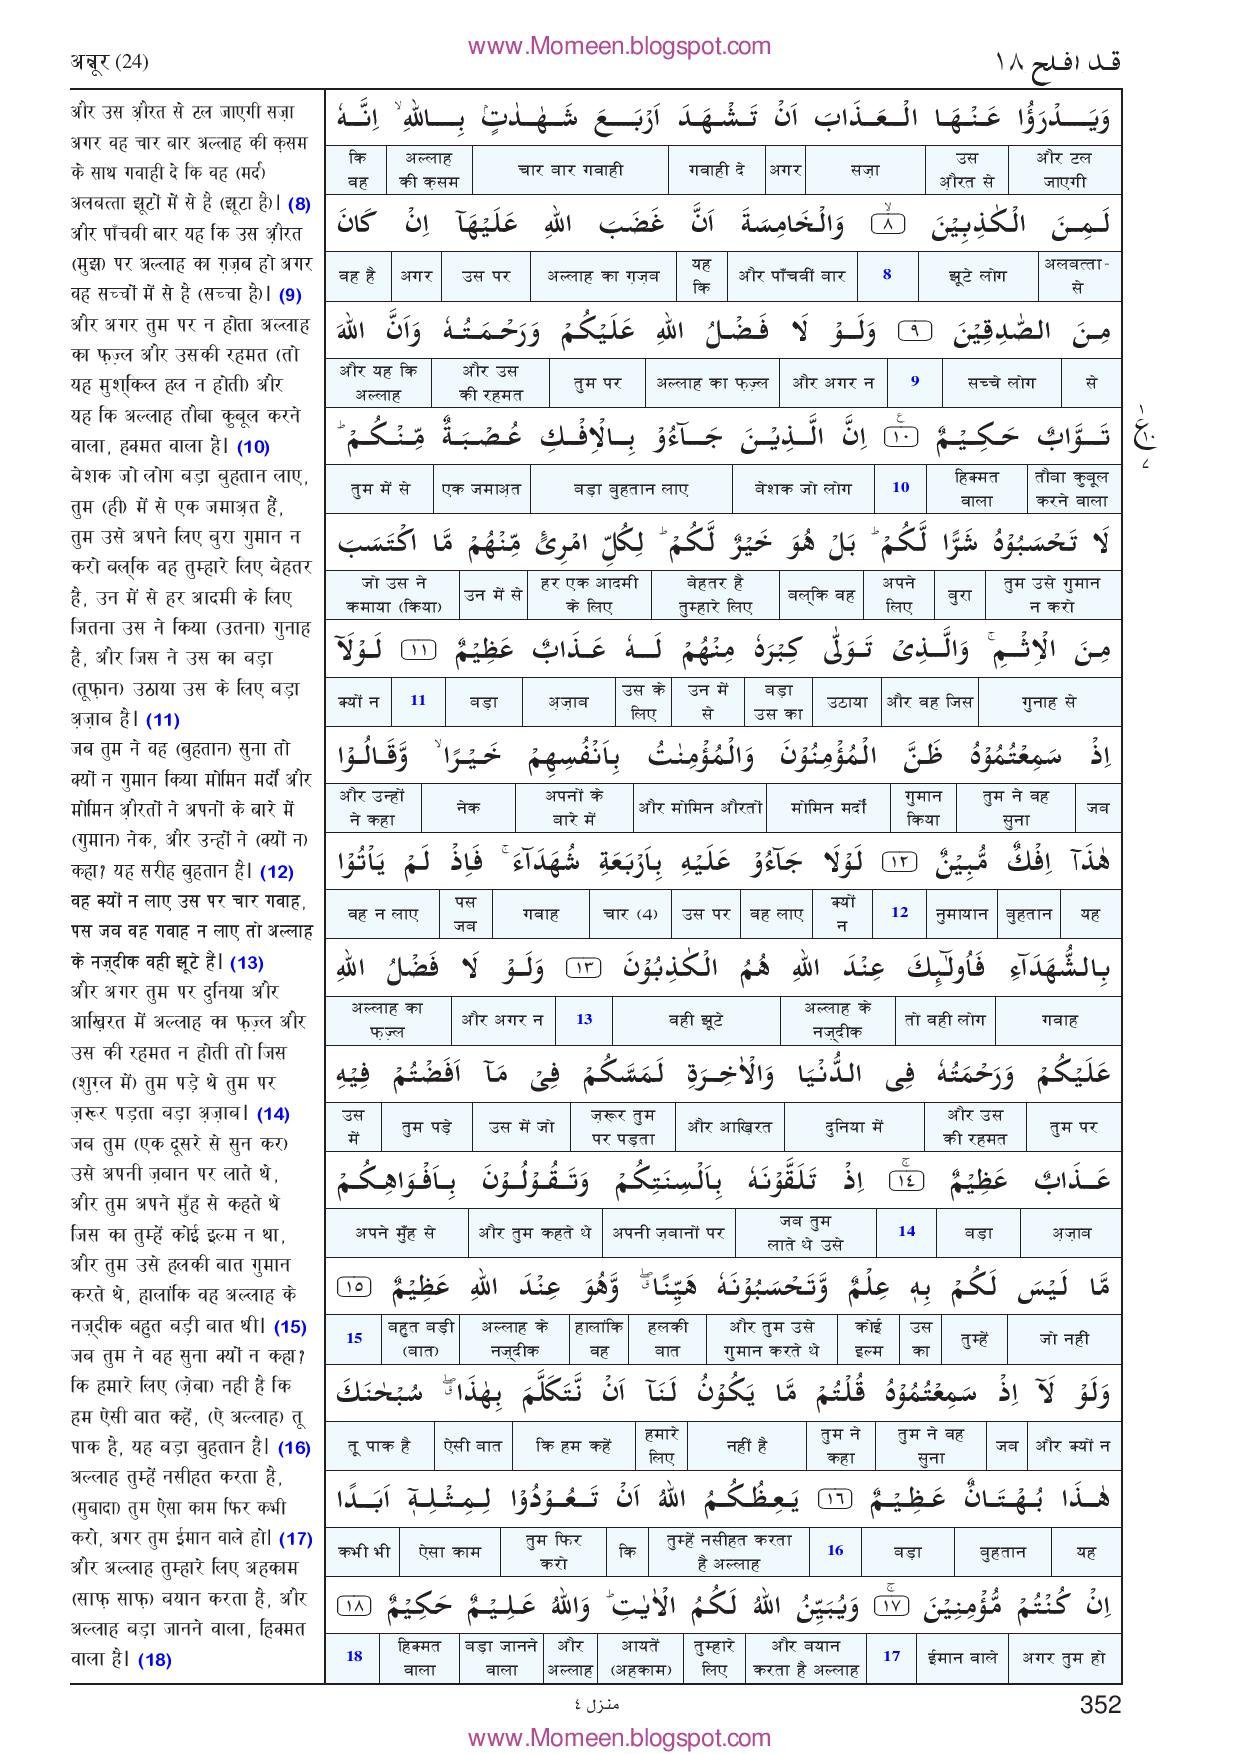 www.Momeen.blogspot.com
अन्नूर (24)
قد افلح ١٨
और उस औ़रत से टल जाएगी सज़ा
अगर वह चार बार अल्लाह की क़सम
के साथ गवाही दे कि वह (मर्द)
अलबत्ता झूटों में से है (झूटा है)। (8)
और पाँचवी बार यह कि उस औ़रत
(मुझ) पर अल्लाह का ग़ज़ब हो अगर
वह सच्चों में से है (सच्चा है)। (9)
और अगर तुम पर न होता अल्लाह
का फ़ज़्ल और उसकी रहमत (तो
यह मुश्किल हल न होती) और
यह कि अल्लाह तौबा कुबूल करने
वाला, हक्मत वाला है। (10)
बेशक जो लोग बड़ा बुहतान लाए,
तुम (ही) में से एक जमाअ़त हैं,
तुम उसे अपने लिए बुरा गुमान न
करो बल्कि वह तुम्हारे लिए बेहतर
है, उन में से हर आदमी के लिए
जितना उस ने किया (उतना) गुनाह
है, और जिस ने उस का बड़ा
(तूफ़ान) उठाया उस के लिए बड़ा
अ़ज़ाब है। (11)
जब तुम ने वह (बुहतान) सुना तो
क्यों न गुमान किया मोमिन मर्दों और
मोमिन औ़रतों ने अपनों के बारे में
(गुमान) नेक, और उन्हों ने (क्यों न)
कहा? यह सरीह बुहतान है। (12)
वह क्यों न लाए उस पर चार गवाह,
पस जब वह गवाह न लाए तो अल्लाह
के नज़्दीक वही झूटे है। (13)
और अगर तुम पर दुनिया और
आख़िरत में अल्लाह का फ़ज़्ल और
उस की रहमत न होती तो जिस
(शुग़्ल में) तुम पड़े थे तुम पर
ज़रूर पड़ता बड़ा अ़ज़ाब। (14)
जब तुम (एक दूसरे से सुन कर)
उसे अपनी ज़बान पर लाते थे,
और तुम अपने मुँह से कहते थे
जिस का तुम्हें कोई इल्म न था,
और तुम उसे हलकी बात गुमान
करते थे, हालांकि वह अल्लाह के
नज़्दीक बहुत बड़ी बात थी। (15)
जब तुम ने वह सुना क्यों न कहा?
कि हमारे लिए (ज़ेबा) नही है कि
हम ऐसी बात कहें, (ऐ अल्लाह) तू
पाक है, यह बड़ा बुहतान है। (16)
अल्लाह तुम्हें नसीहत करता है,
(मुबादा) तुम ऐसा काम फिर कभी
करो, अगर तुम ईमान वाले हो। (17)
और अल्लाह तुम्हारे लिए अहकाम
(साफ़ साफ़) बयान करता है, और
अल्लाह बड़ा जानने वाला, हिक्मत
वाला है। (18)
وَيَدْرَؤُا عَنْهَا الْعَذَابَ اَنْ تَشْهَدَ اَرْبَعَ شَهٰدٰتٍۭ بِاللّٰهِ ۙ اِنَّهٗ
और टल जाएगी | उस औ़रत से | सज़ा | अगर | गवाही दे | चार बार गवाही | अल्लाह की क़सम | कि वह
لَمِنَ الْكٰذِبِيْنَ ۙ‏٨ وَالْخَامِسَةَ اَنَّ غَضَبَ اللّٰهِ عَلَيْهَآ اِنْ كَانَ
अलबत्ता-से | झूटे लोग | 8 | और पाँचवीं बार | यह कि | अल्लाह का ग़ज़ब | उस पर | अगर | वह है
مِنَ الصّٰدِقِيْنَ ٩ وَلَوْ لَا فَضْلُ اللّٰهِ عَلَيْكُمْ وَرَحْمَتُهٗ وَاَنَّ اللّٰهَ
से | सच्चे लोग | 9 | और अगर न | अल्लाह का फ़ज़्ल | तुम पर | और उस की रहमत | और यह कि अल्लाह
تَوَّابٌ حَكِيْمٌ ۧ‏١٠ اِنَّ الَّذِيْنَ جَآءُوْ بِالْاِفْكِ عُصْبَةٌ مِّنْكُمْ ؕ
ع ١ ١٠ ٧
तौबा कुबूल करने वाला | हिक्मत वाला | 10 | बेशक जो लोग | बड़ा बुहतान लाए | एक जमाअ़त | तुम में से
لَا تَحْسَبُوْهُ شَرًّا لَّكُمْ ؕ بَلْ هُوَ خَيْرٌ لَّكُمْ ؕ لِكُلِّ امْرِئٍ مِّنْهُمْ مَّا اكْتَسَبَ
तुम उसे गुमान न करो | बुरा | अपने लिए | बल्कि वह | बेहतर है तुम्हारे लिए | हर एक आदमी के लिए | उन में से | जो उस ने कमाया (किया)
مِنَ الْاِثْمِ ۚ وَالَّذِيْ تَوَلّٰى كِبْرَهٗ مِنْهُمْ لَهٗ عَذَابٌ عَظِيْمٌ ١١ لَوْلَآ
गुनाह से | और वह जिस | उठाया | बड़ा उस का | उन में से | उस के लिए | अ़ज़ाब | बड़ा | 11 | क्यों न
اِذْ سَمِعْتُمُوْهُ ظَنَّ الْمُؤْمِنُوْنَ وَالْمُؤْمِنٰتُ بِاَنْفُسِهِمْ خَيْرًا ۙ وَّقَالُوْا
जब | तुम ने वह सुना | गुमान किया | मोमिन मर्दों | और मोमिन औरतों | अपनों के बारे में | नेक | और उन्हों ने कहा
هٰذَآ اِفْكٌ مُّبِيْنٌ ١٢ لَوْلَا جَآءُوْ عَلَيْهِ بِاَرْبَعَةِ شُهَدَآءَ ۚ فَاِذْ لَمْ يَاْتُوْا
यह | बुहतान | नुमायान | 12 | क्यों न | वह लाए | उस पर | चार (4) | गवाह | पस जब | वह न लाए
بِالشُّهَدَآءِ فَاُولٰٓئِكَ عِنْدَ اللّٰهِ هُمُ الْكٰذِبُوْنَ ١٣ وَلَوْ لَا فَضْلُ اللّٰهِ
गवाह | तो वही लोग | अल्लाह के नज़्दीक | वही झूटे | 13 | और अगर न | अल्लाह का फ़ज़्ल
عَلَيْكُمْ وَرَحْمَتُهٗ فِى الدُّنْيَا وَالْاٰخِرَةِ لَمَسَّكُمْ فِيْ مَآ اَفَضْتُمْ فِيْهِ
तुम पर | और उस की रहमत | दुनिया में | और आख़िरत | ज़रूर तुम पर पड़ता | उस में जो | तुम पड़े | उस में
عَذَابٌ عَظِيْمٌ ۚ‏١٤ اِذْ تَلَقَّوْنَهٗ بِاَلْسِنَتِكُمْ وَتَقُوْلُوْنَ بِاَفْوَاهِكُمْ
अ़ज़ाब | बड़ा | 14 | जब तुम लाते थे उसे | अपनी ज़बानों पर | और तुम कहते थे | अपने मुँह से
مَّا لَيْسَ لَكُمْ بِهٖ عِلْمٌ وَّتَحْسَبُوْنَهٗ هَيِّنًا ۖۗ وَّهُوَ عِنْدَ اللّٰهِ عَظِيْمٌ ١٥
जो नहीं | तुम्हें | उस का | कोई इल्म | और तुम उसे गुमान करते थे | हलकी बात | हालांकि वह | अल्लाह के नज़्दीक | बहुत बड़ी (बात) | 15
وَلَوْ لَآ اِذْ سَمِعْتُمُوْهُ قُلْتُمْ مَّا يَكُوْنُ لَنَآ اَنْ نَّتَكَلَّمَ بِهٰذَا ۖۗ سُبْحٰنَكَ
और क्यों न | जब | तुम ने वह सुना | तुम ने कहा | नहीं है | हमारे लिए | कि हम कहें | ऐसी बात | तू पाक है
هٰذَا بُهْتَانٌ عَظِيْمٌ ١٦ يَعِظُكُمُ اللّٰهُ اَنْ تَعُوْدُوْا لِمِثْلِهٖٓ اَبَدًا
यह | बुहतान | बड़ा | 16 | तुम्हें नसीहत करता है अल्लाह | कि | तुम फिर करो | ऐसा काम | कभी भी
اِنْ كُنْتُمْ مُّؤْمِنِيْنَ ۚ‏١٧ وَيُبَيِّنُ اللّٰهُ لَكُمُ الْاٰيٰتِ ؕ وَاللّٰهُ عَلِيْمٌ حَكِيْمٌ ١٨
अगर तुम हो | ईमान वाले | 17 | और बयान करता है अल्लाह | तुम्हारे लिए | आयतें (अहकाम) | और अल्लाह | बड़ा जानने वाला | हिक्मत वाला | 18
منزل ٤
352
www.Momeen.blogspot.com